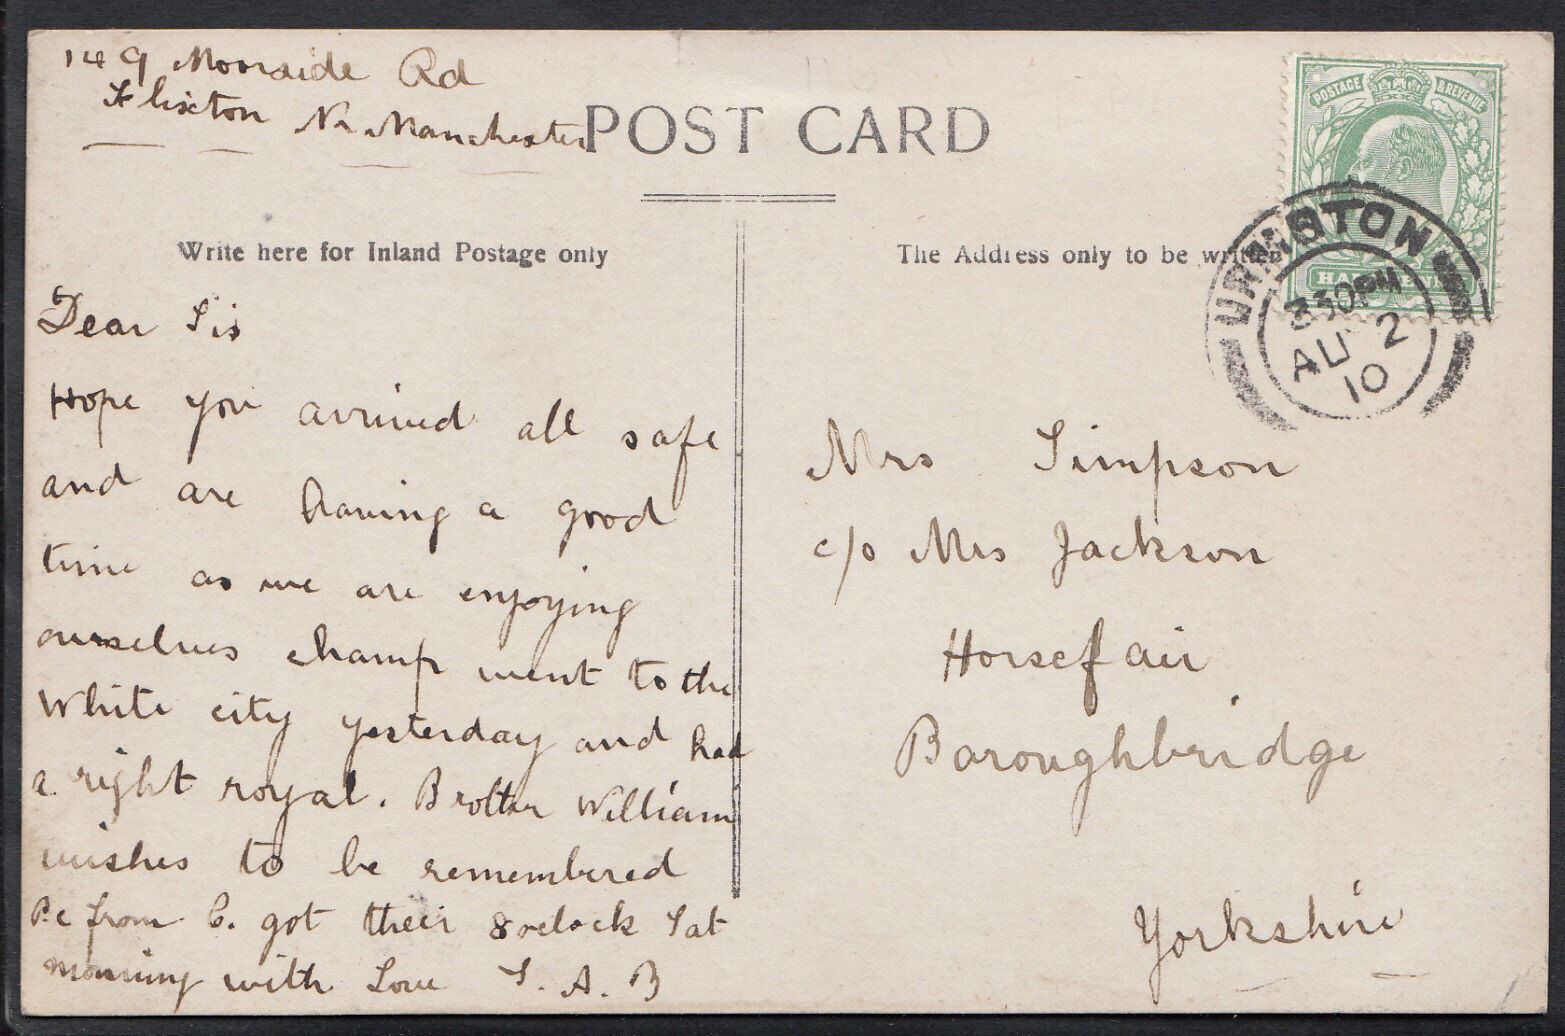 149 Moorside Rd
Flixton Nr Manchester
POST CARD
Write here for Inland Postage only
The Address only to be written
POSTAGE & REVENUE
URMSTON
3 30 PM
AU 2
10
Dear Sis
Hope you arrived all safe
and are having a good
time as we are enjoying
ourselves champ went to the
White city yesterday and had
a right royal. Brother William
wishes to be remembered
P.c from C. got their 8 oclock Sat
morning with Love S. A. B
Mrs Simpson
c/o Mrs Jackson
Horsefair
Boroughbridge
Yorkshire